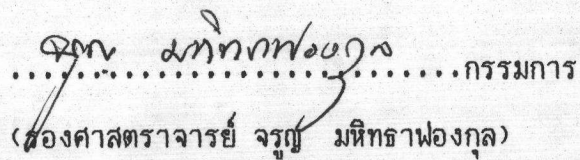 จรูญ มหิทธาฟองกุล
........................กรรมการ
(รองศาสตราจารย์ จรูญ มหิทธาฟองกุล)